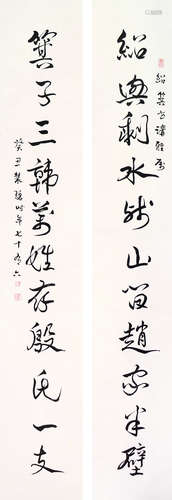 紹興剩水殘山留趙家半壁
紹箕
箕子三韓萬姓存殷氏一支
癸丑 時年七十有六